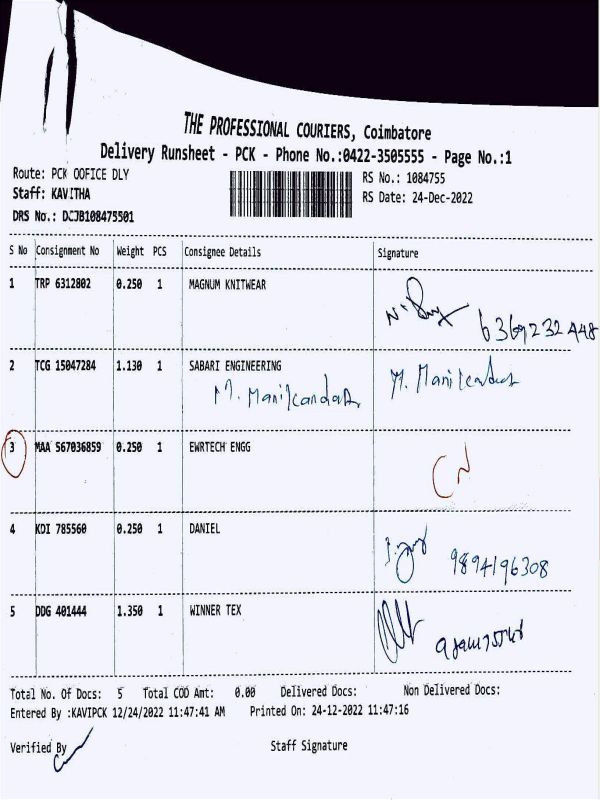 THE PROFESSIONAL COURIERS, Coimbatore
Delivery Runsheet - PCK - Phone No.:0422-3505555 - Page No.:1
Route: PCK OOFICE DLY RS No.: 1084755
Staff: KAVITHA RS Date: 24-Dec-2022
DRS No.: DCJB108475501
S No Consignment No Weight PCS Consignee Details Signature
1 TRP 6312802 0.250 1 MAGNUM KNITWEAR
2 TCG 15047284 1.130 1 SABARI ENGINEERING
M. Manikandan M. Manikandan
3 MAA 567036859 0.250 1 EWRTECH ENGG
4 KDI 785560 0.250 1 DANIEL
9894196308
5 DDG 401444 1.350 1 WINNER TEX
Total No. Of Docs: 5 Total COD Amt: 0.00 Delivered Docs: Non Delivered Docs:
Entered By :KAVIPCK 12/24/2022 11:47:41 AM Printed On: 24-12-2022 11:47:16
Verified By Staff Signature